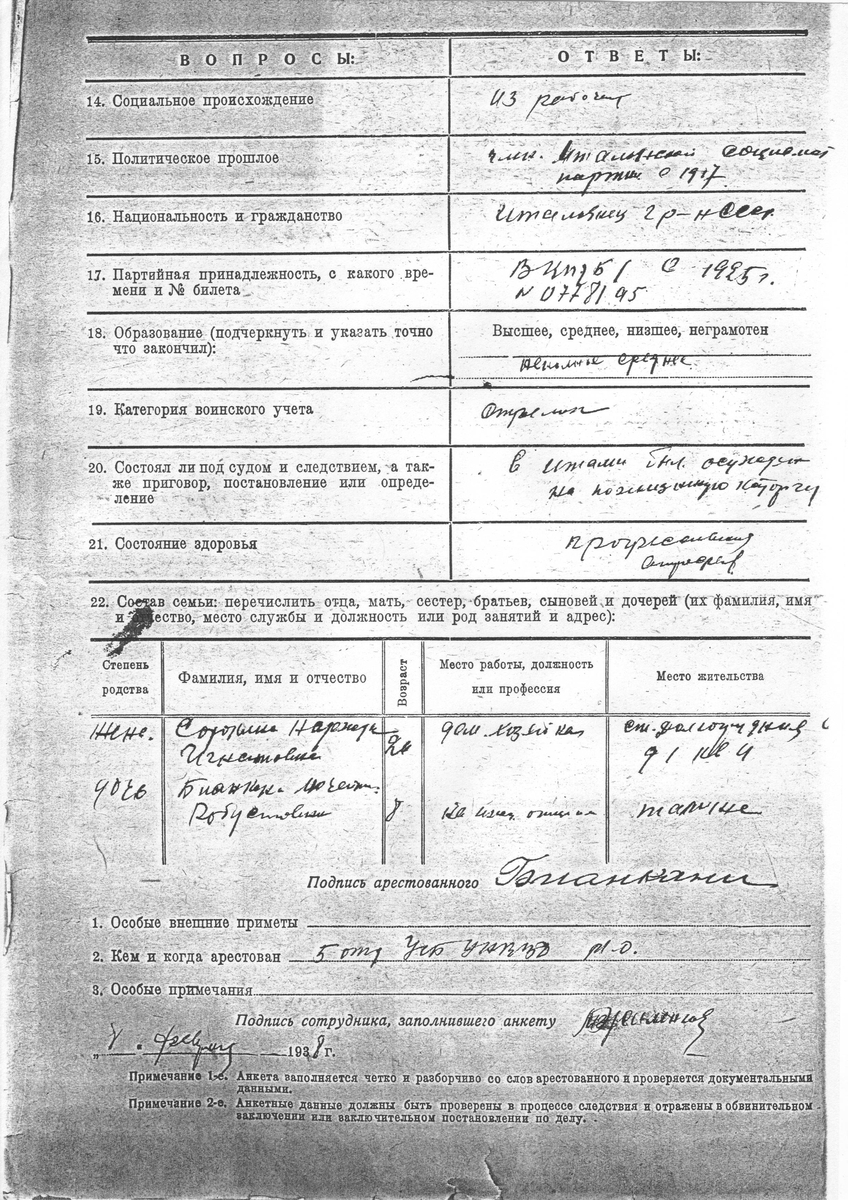 ВОПРОСЫ:
ОТВЕТЫ:
14. Социальное происхождение
из рабочих
15. Политическое прошлое
член. Итальянской социалист
партии с 1917
16. Национальность и гражданство
Итальянец гр-н СССР
17. Партийная принадлежность, с какого вре-
мени и № билета
ВКП/б/ с 1925 г.
N 0778195
18. Образование (подчеркнуть и указать точно
что закончил):
Высшее, среднее, низшее, неграмотен
неполное среднее
19. Категория воинского учета
20. Состоял ли под судом и следствием, а так-
же приговор, постановление или опреде-
ление
в Итали был осужден
на каторгу
21. Состояние здоровья
22. Состав семьи: перечислить отца, мать, сестер, братьев, сыновей и дочерей (их фамилия, имя
и отчество, место службы и должность или род занятий и адрес):
Степень
родства
Фамилия, имя и отчество
Возраст
Место работы, должность
или профессия
Место жительства
жена.
Игнатовна
дом. хозяйка
ст. Долгопрудная
д 1 кв 4
дочь
Бианкани
Робустовна
8
на
там же
Подпись арестованного Бианкани
1. Особые внешние приметы
2. Кем и когда арестован 5 отд УГБ УНКВД М.О.
3. Особые примечания
Подпись сотрудника, заполнившего анкету
„ 8 " февраля 1938 г.
Примечание 1-е. Анкета заполняется четко и разборчиво со слов арестованного и проверяется документальными
данными.
Примечание 2-е. Анкетные данные должны быть проверены в процессе следствия и отражены в обвинительном
заключении или заключительном постановлении по делу.